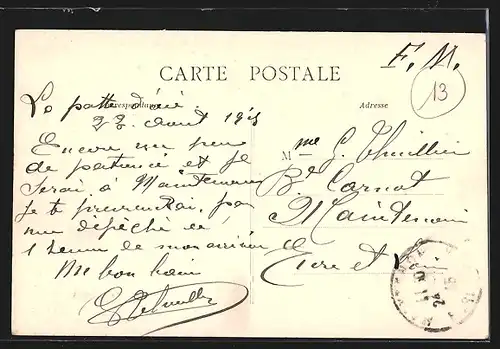 F. M.
13
CARTE POSTALE
Correspondance
Adresse
La patte d'oie
22 Aout 1915
Encore un peu
de patience et je
serai à Maintenon
je te previendrai, par
une dépèche de
1 heure de mon arrivée
Mme G. Thuillier
Bd Carnot
Maintenon
Eure et